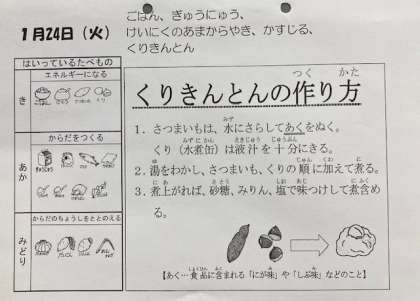 1月24日（火）
ごはん、ぎゅうにゅう、
けいにくのあまからやき、かすじる、
くりきんとん
はいっているたべもの
エネルギーになる
き
からだをつくる
あか
からだのちょうしをととのえる
みどり
くりきんとんの作り方
1．さつまいもは、水にさらしてあくをぬく。
くり（水煮缶）は液汁を十分にきる。
2．湯をわかし、さつまいも、くりの順に加えて煮る。
3．煮上がれば、砂糖、みりん、塩で味つけして煮含め
る。
【あく…食品に含まれる「にが味」や「しぶ味」などのこと】